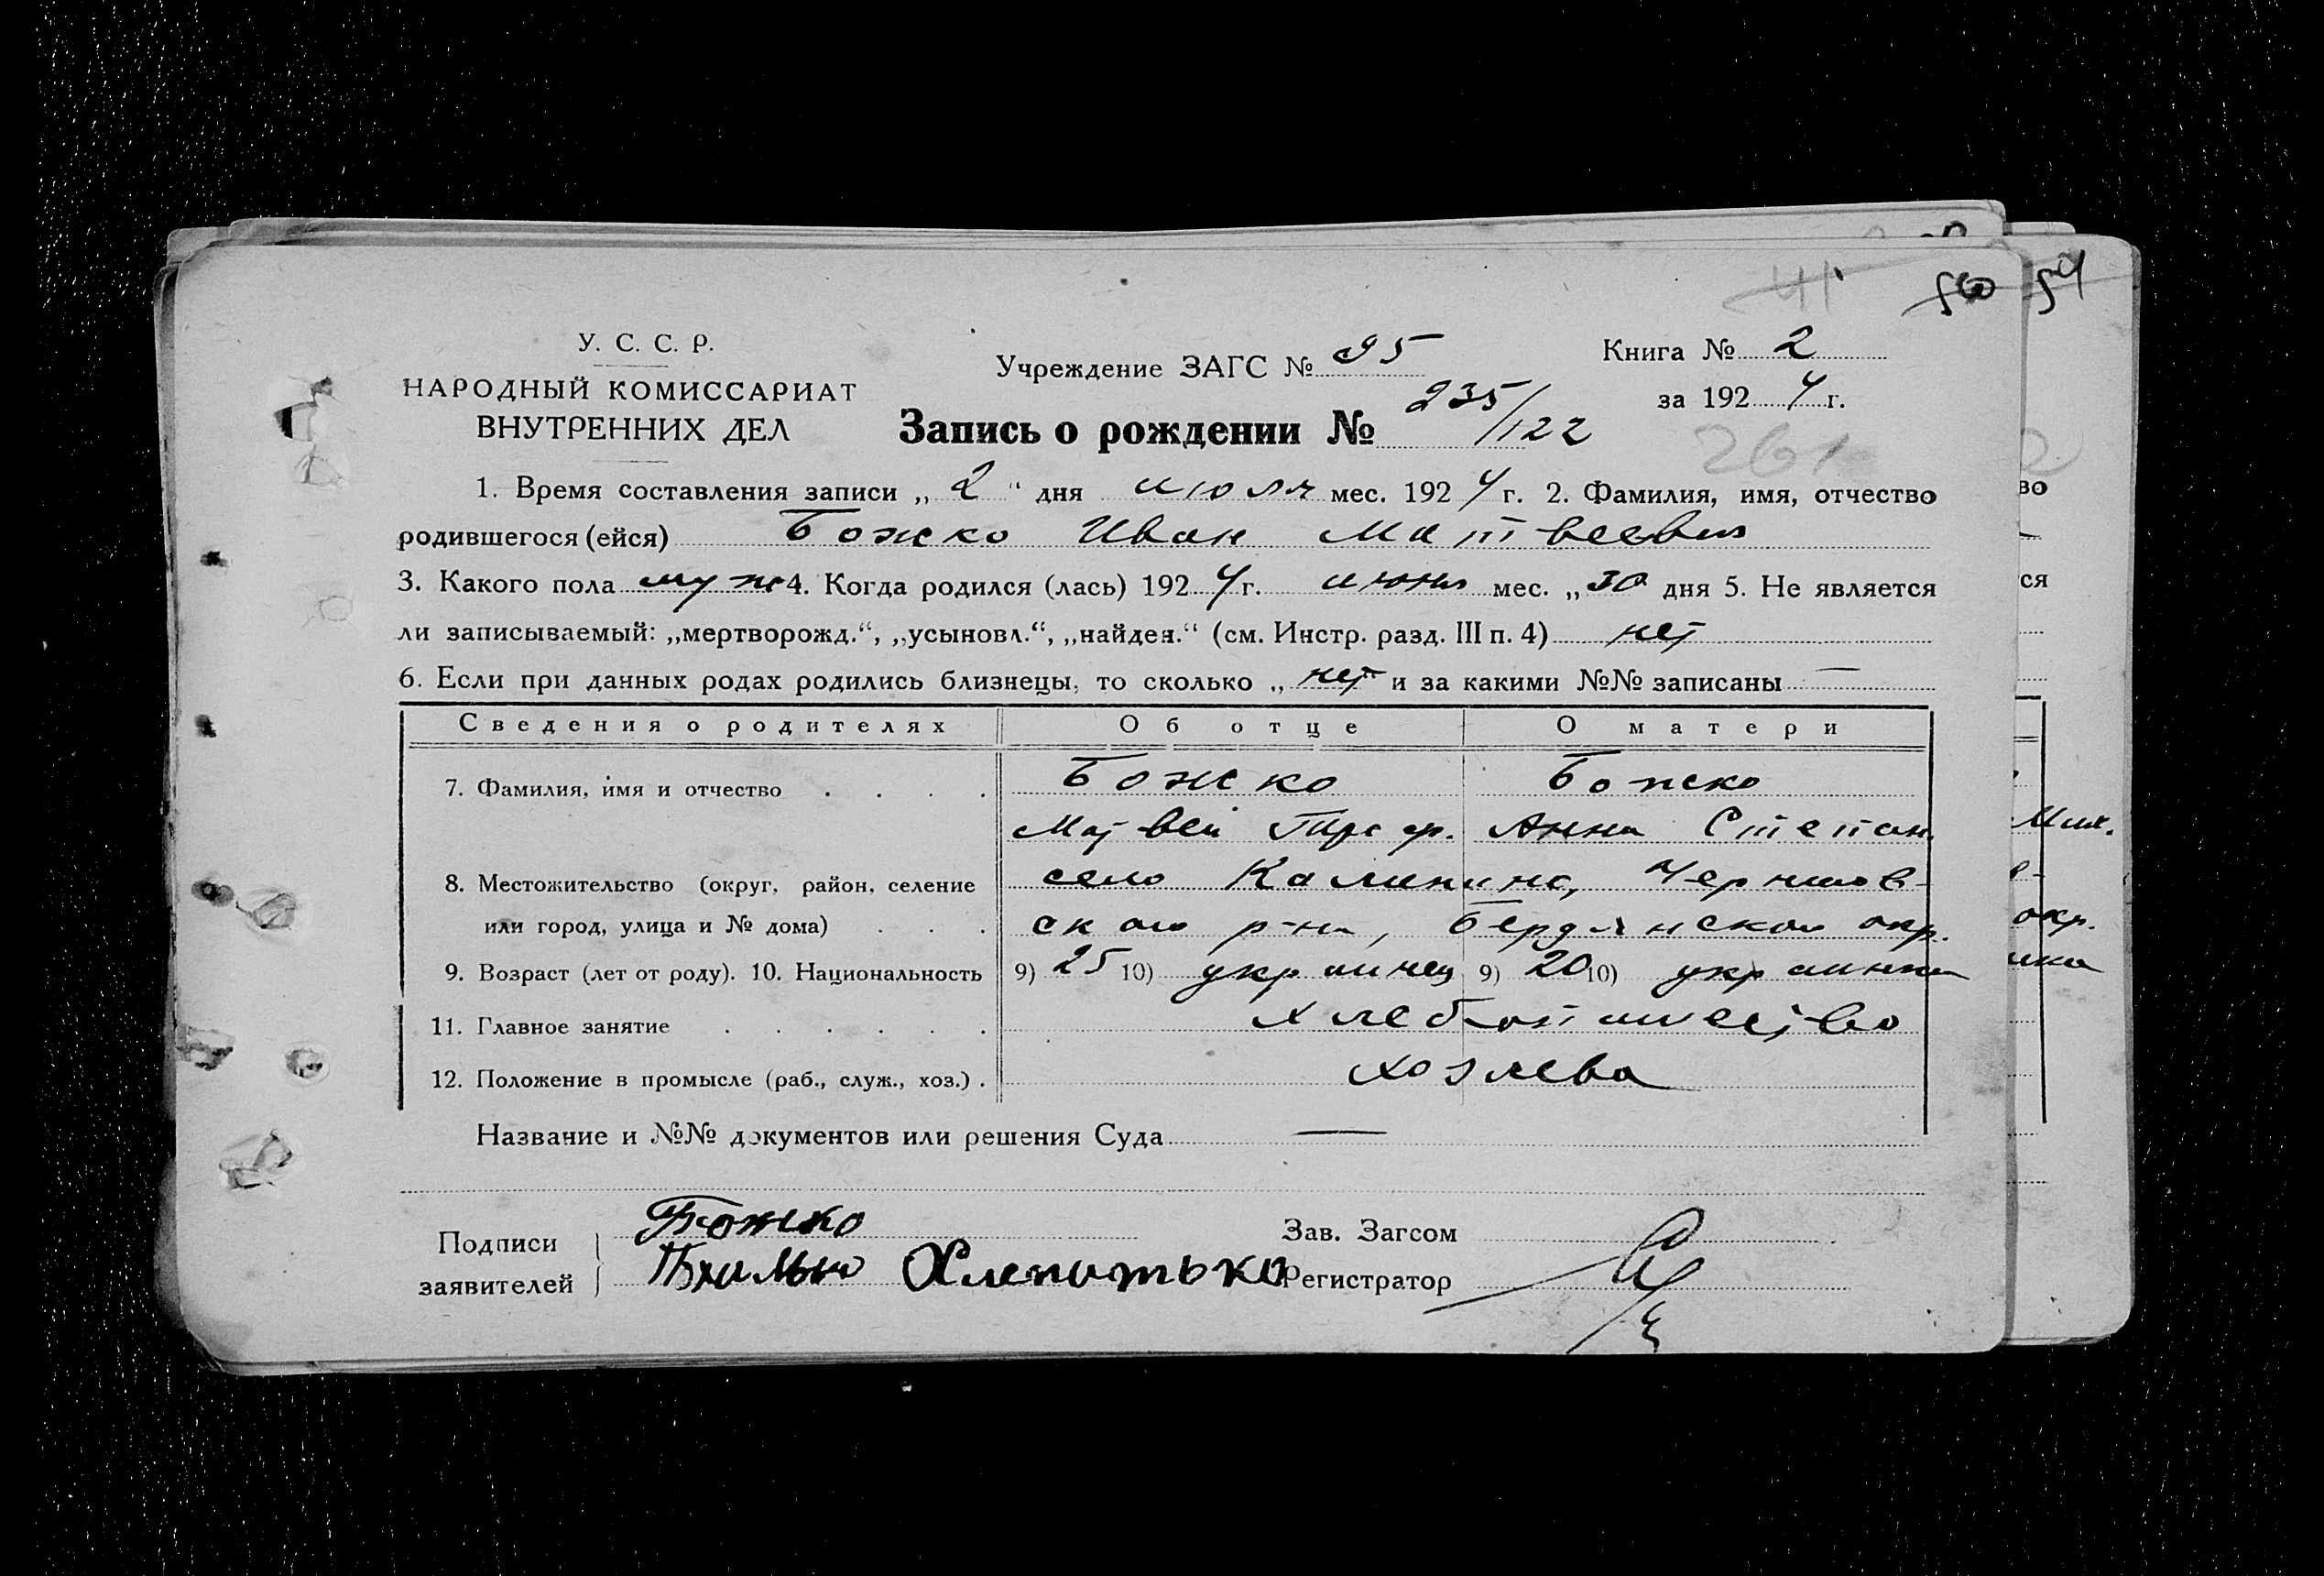 41
50 54
У. С. С. Р.
НАРОДНЫЙ КОМИССАРИАТ
ВНУТРЕННИХ ДЕЛ
Учреждение ЗАГС № 95
Книга № 2
за 1924 г.
Запись о рождении № 235/122
261
1. Время составления записи „2“ дня июля мес. 1924 г. 2. Фамилия, имя, отчество
родившегося (ейся) Божко Иван Матвеевич
3. Какого пола муж 4. Когда родился (лась) 1924 г. июня мес. „30 дня 5. Не является
ли записываемый: „мертворожд.“, „усыновл.“, „найден.“ (см. Инстр. разд. III п. 4) нет
6. Если при данных родах родились близнецы, то сколько „нет“ и за какими №№ записаны —
Сведения о родителях Об отце О матери
7. Фамилия, имя и отчество Божко Божко
Матвей Анна Степан.
8. Местожительство (округ, район, селение село Калинино,
или город, улица и № дома) ского р-на, Бердянского окр.
9. Возраст (лет от роду). 10. Национальность 9) 25 10) украинец 9) 20 10) украинка
11. Главное занятие хлебопашество
12. Положение в промысле (раб., служ., хоз.) хозяева
Название и №№ документов или решения Суда —
Подписи заявителей
Божко
Зав. Загсом
Регистратор
во
ся
Мих.
окр.